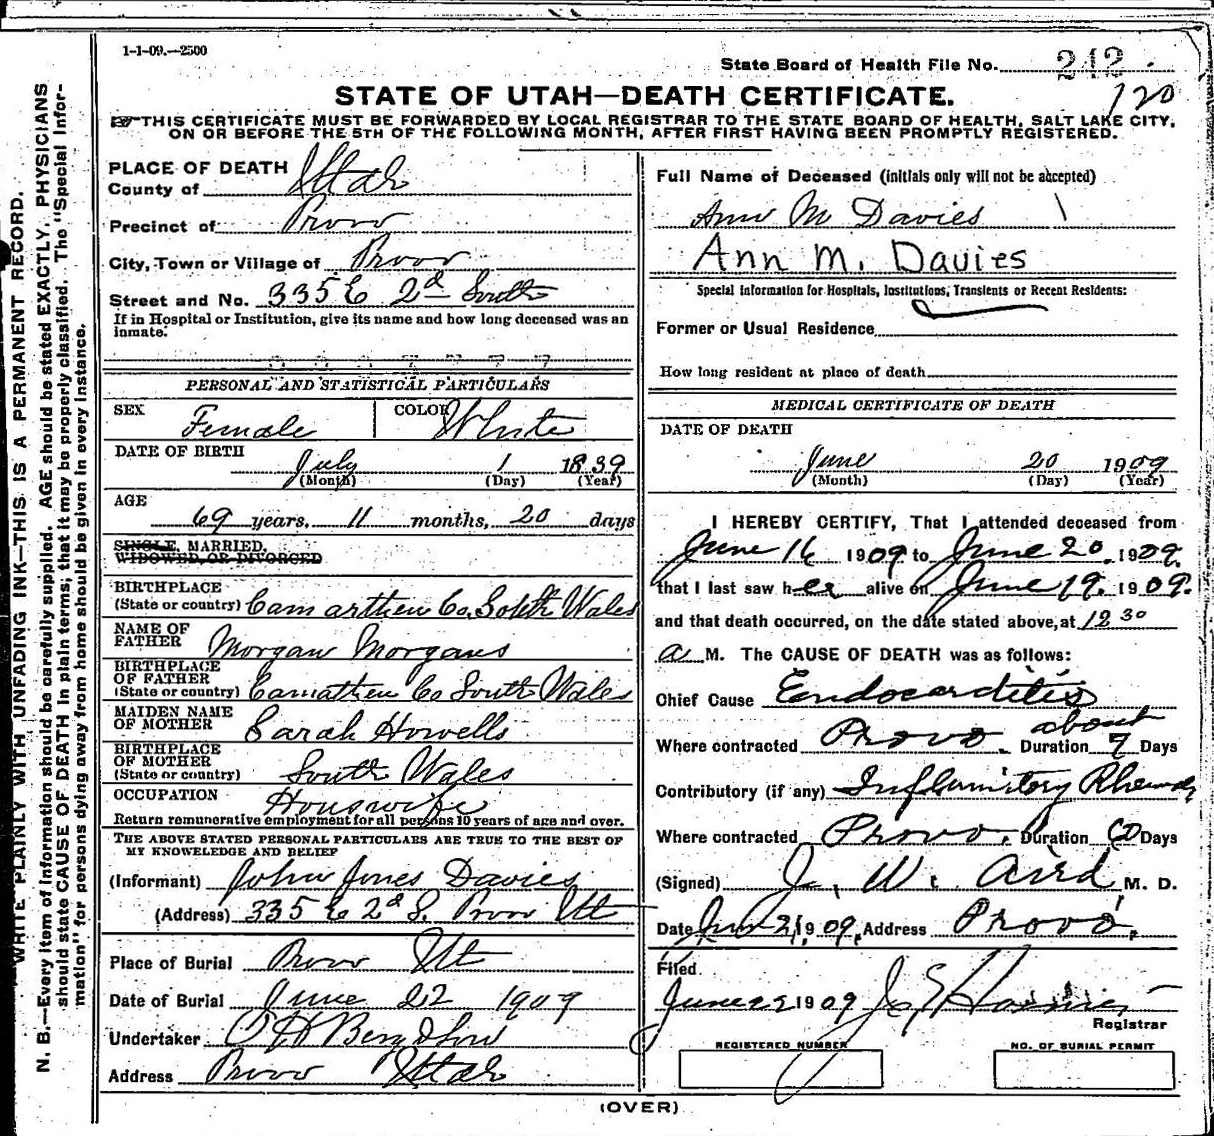 1-1-09.—2500
State Board of Health File No. 242
120
STATE OF UTAH—DEATH CERTIFICATE.
THIS CERTIFICATE MUST BE FORWARDED BY LOCAL REGISTRAR TO THE STATE BOARD OF HEALTH, SALT LAKE CITY,
ON OR BEFORE THE 5TH OF THE FOLLOWING MONTH, AFTER FIRST HAVING BEEN PROMPTLY REGISTERED.
PLACE OF DEATH
County of Utah
Precinct of Provo
City, Town or Village of Provo
Street and No. 335 E 2d South
If in Hospital or Institution, give its name and how long deceased was an
inmate.
PERSONAL AND STATISTICAL PARTICULARS
SEX Female COLOR White
DATE OF BIRTH July 1 1839
(Month) (Day) (Year)
AGE
69 years, 11 months, 20 days
SINGLE, MARRIED,
WIDOWED, OR DIVORCED
BIRTHPLACE
(State or country) Camarthen Co. South Wales
NAME OF
FATHER Morgan Morgans
BIRTHPLACE
OF FATHER
(State or country) Camathen Co South Wales
MAIDEN NAME
OF MOTHER Sarah Howells
BIRTHPLACE
OF MOTHER
(State or country) South Wales
OCCUPATION Houswife
Return remunerative employment for all persons 10 years of age and over.
THE ABOVE STATED PERSONAL PARTICULARS ARE TRUE TO THE BEST OF
MY KNOWLEDGE AND BELIEF
(Informant) John Jones Davies
(Address) 335 E 2d S. Provo Ut
Place of Burial Provo Ut
Date of Burial June 22 1909
Undertaker Berg & Son
Address Provo Utah
Full Name of Deceased (initials only will not be accepted)
Ann M Davies
Ann M. Davies
Special Information for Hospitals, Institutions, Transients or Recent Residents:
Former or Usual Residence
How long resident at place of death
MEDICAL CERTIFICATE OF DEATH
DATE OF DEATH
June 20 1909
(Month) (Day) (Year)
I HEREBY CERTIFY, That I attended deceased from
June 16 1909 to June 20, 1909.
that I last saw her alive on June 19. 1909.
and that death occurred, on the date stated above, at 12 30
a M. The CAUSE OF DEATH was as follows:
Chief Cause Endocarditis
about
Where contracted Provo. Duration 7 Days
Contributory (if any) Inflamitory Rheum
Where contracted Provo. Duration 60 Days
(Signed) J. W. Aird M. D.
Date Jun 21, 1909, Address Provo.
Filed
June 22 1909
Registrar
REGISTERED NUMBER
NO. OF BURIAL PERMIT
(OVER)
WRITE PLAINLY WITH UNFADING INK—THIS IS A PERMANENT RECORD.
N. B.—Every item of information should be carefully supplied. AGE should be stated EXACTLY. PHYSICIANS
should state CAUSE OF DEATH in plain terms, that it may be properly classified. The "Special Infor-
mation" for persons dying away from home should be given in every instance.